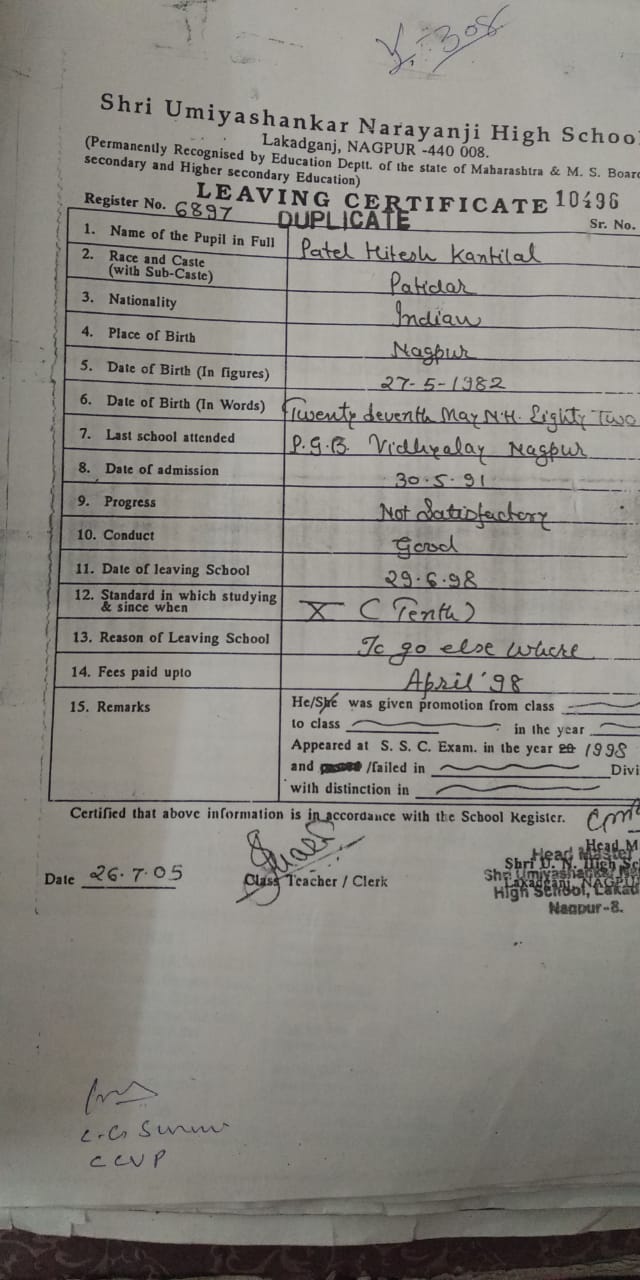 308
Shri Umiyashankar Narayanji High School
Lakadganj, NAGPUR -440 008.
(Permanently Recognised by Education Deptt. of the state of Maharashtra & M. S. Board
secondary and Higher secondary Education)
LEAVING CERTIFICATE 10496
Register No. 6897 DUPLICATE Sr. No.
1. Name of the Pupil in Full Patel Hitesh Kantilal
2. Race and Caste
(with Sub-Caste) Patidar
3. Nationality Indian
4. Place of Birth Nagpur
5. Date of Birth (In figures) 27-5-1982
6. Date of Birth (In Words) Twenty Seventh May N.H. Eighty Two
7. Last school attended P.G.B. Vidhyalay Nagpur
8. Date of admission 30.5.91
9. Progress Not Satisfactory
10. Conduct Good
11. Date of leaving School 29.6.98
12. Standard in which studying
& since when X (Tenth)
13. Reason of Leaving School To go else where
14. Fees paid upto April '98
15. Remarks He/She was given promotion from class
to class in the year
Appeared at S. S. C. Exam. in the year 20 1998
and /failed in Divi
with distinction in
Certified that above information is in accordance with the School Register.
Head M
Head Master
Shri U. N. High Sc
Date 26.7.05 Class Teacher / Clerk
Shri Umiyashankar Na
Lakadganj, NAGPUR
High School, Lakad
Nagpur-8.
CCVP